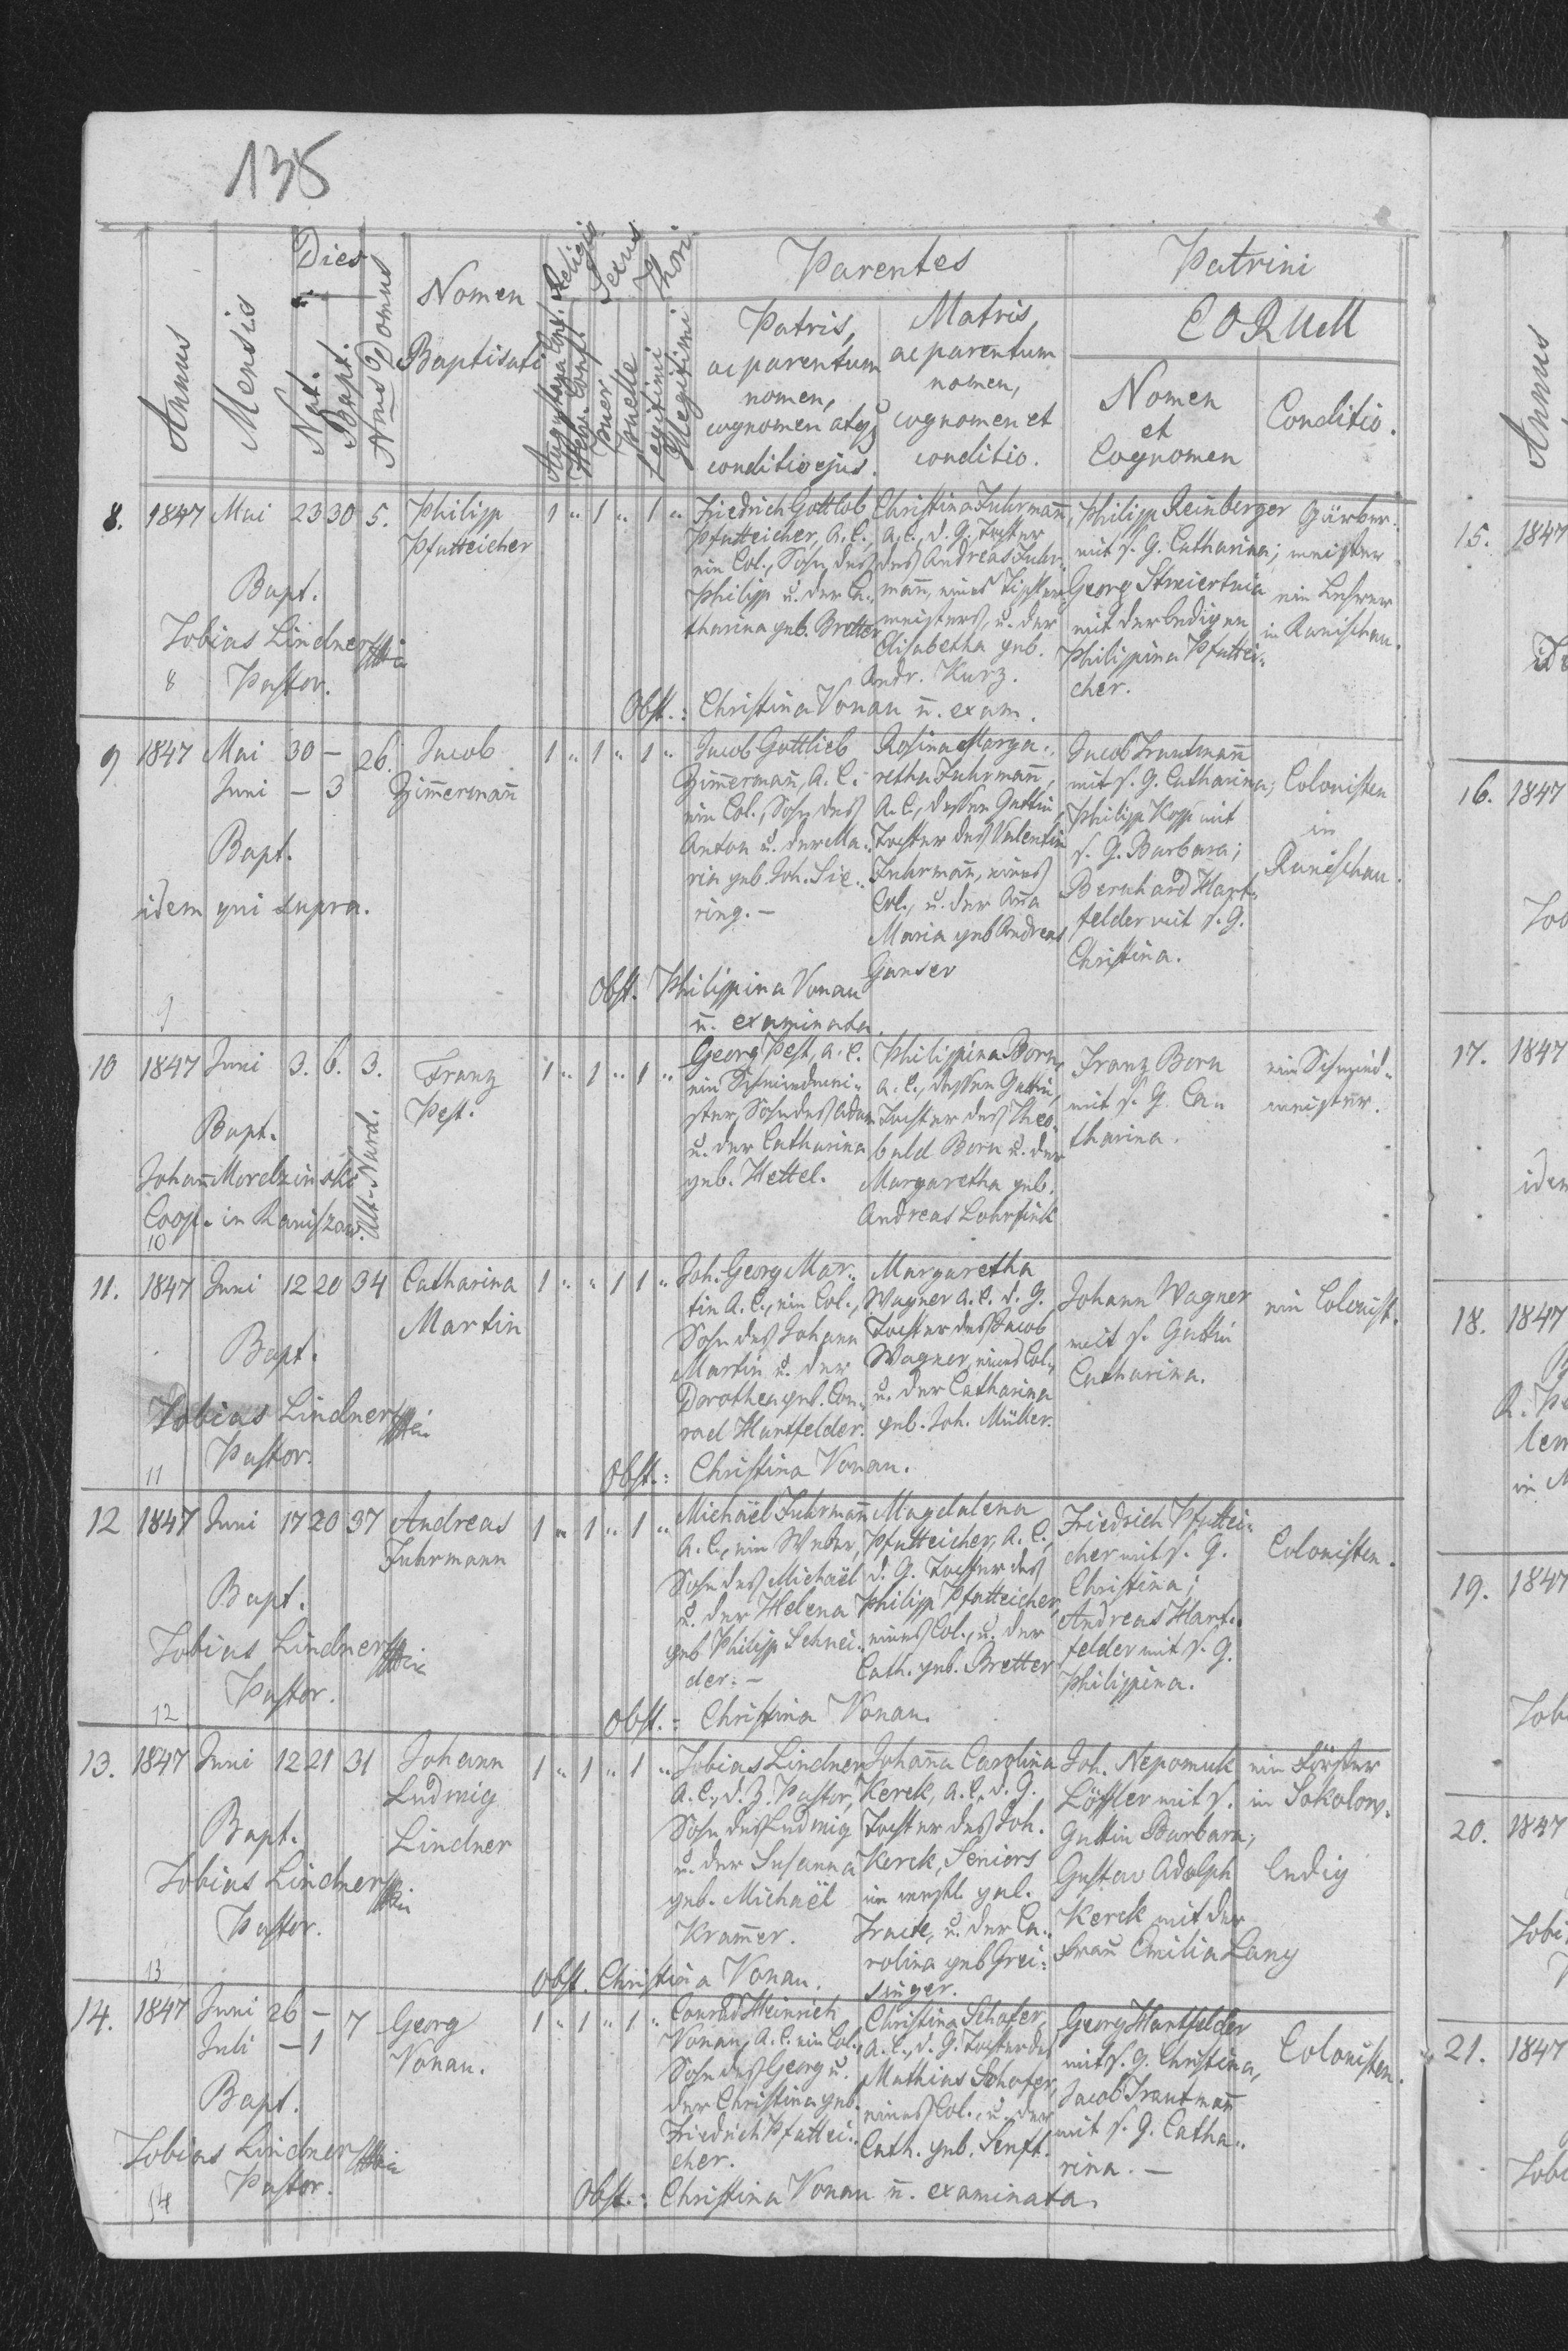 135
Annus
Mensis
Dies
Nat.
Bapt.
Nrus Domus
Nomen
Baptisati
Religio
Augustana Conf.
Helv. Conf.
Sexus
Puer
Puella
Thori
Legitimi
Illegitimi
Parentes
Patris,
ac parentum
nomen,
cognomen atq
conditio ejus.
Matris,
ac parentum
nomen,
cognomen et
conditio.
Patrini
EORUM
Nomen
et
Cognomen
Conditio.
8. 1847 Mai 23 30 5. Philipp
Pfutteicher
1 " 1 " 1 "
Bapt.
Tobias Lindner
Pastor.
8
Friedrich Gottlob
Pfutteicher, A. C.,
ein Col., Sohn des
Philipp u. der Ca-
tharina geb. Bretter
Christina Fuhrmann,
A. C., d. G. Tochter
des Andreas Fuhr-
mann, eines Tischler-
meisters, u. der
Elisabetha geb.
Andr. Kurz.
Philipp Reinberger
mit s. G. Catharina;
Georg
mit der ledigen
Philippina Pfuttei-
cher.
Gärber-
meister
ein Lehrer
in Ranischau.
Obst.: Christina Vonau n. exam.
9 1847 Mai 30 – 26. Jacob
Juni – 3 Zimmermann
1 " 1 " 1 "
Bapt.
idem qui supra.
9
Jacob Gottlieb
Zimmermann, A. C.
ein Col., Sohn des
Anton u. der Ma-
ria geb. Joh. Sie-
ring. –
Rosina Marga-
retha Fuhrmann,
A. C., dessen Gattin,
Tochter des Valentin
Fuhrmann, eines
Col., u. der Anna
Maria geb Andreas
Ganser
Jacob Trautmann
mit s. G. Catharina;
Philipp Kopp mit
s. G. Barbara;
Bernhard Hart-
felder mit s. G.
Christina.
Colonisten
in
Ranischau.
Obst. Philippina Vonau
n. examinata.
10 1847 Juni 3. 6. 3. Franz
Pest.
Alt-Nard.
1 " 1 " 1 "
Bapt.
Johann Mordzinski
Coop. in Raniszow.
10
Georg Pest, A. C.
ein Schmiedmei-
ster, Sohn des Adam
u. der Catharina
geb. Hettel.
Philippina Born,
A. C., dessen Gattin,
Tochter des Theo-
bald Born u. der
Margaretha geb.
Andreas Lohrfink
Franz Born
mit s. G. Ca-
tharina.
ein Schmied-
meister.
11. 1847 Juni 12 20 34 Catharina
Martin
1 " " 1 1 "
Bapt.
Tobias Lindner
Pastor.
11
Joh. Georg Mar-
tin A. C., ein Col.,
Sohn des Johann
Martin u. der
Dorothea geb. Con-
rad Hartfelder.
Margaretha
Wagner A. C. d. G.
Tochter des Jacob
Wagner, eines Col.,
u. der Catharina
geb. Joh. Müller.
Johann Wagner
mit s. Gattin
Catharina.
ein Colonist.
Obst.: Christina Vonau.
12 1847 Juni 17 20 37 Andreas
Fuhrmann
1 " 1 " 1 "
Bapt.
Tobias Lindner
Pastor.
12
Michaël Fuhrmann
A. C., ein Weber,
Sohn des Michaël
u. der Helena
geb Philipp Schnei-
der. –
Magdalena
Pfutteicher, A. C.,
d. G. Tochter des
Philipp Pfutteicher,
eines Col., u. der
Cath. geb. Bretter
Friedrich Pfuttei-
cher mit s. G.
Christina;
Andreas Hart-
felder mit s. G.
Philippina.
Colonisten.
Obst. – Christina Vonau.
13. 1847 Juni 12 21 31 Johann
Ludwig
Lindner
1 " 1 " 1 "
Bapt.
Tobias Lindner
Pastor.
13
Tobias Lindner
A. C., d. Z. Pastor,
Sohn des Ludwig
u. der Susanna
geb. Michaël
Krammer.
Johanna Carolina
Kerck, A. C., d. G.
Tochter des Joh.
Kerck, Seniors
im westl. gal.
u. der Ca-
rolina geb Grei-
singer.
Joh. Nepomuk
Löffler mit s.
Gattin Barbara;
Gustav Adolph
Kerck mit der
Frau Emilia Lang
ein Förster
in Sokolow.
ledig
Obst. Christina Vonau.
14. 1847 Juni 26 – 7 Georg
Juli – 1 Vonau.
1 " 1 " 1 "
Bapt.
Tobias Lindner
Pastor.
14
Conrad Heinrich
Vonau, A. C. ein Col.,
Sohn des Georg u.
der Christina geb.
Friedrich Pfuttei-
cher.
Christina Schafer,
A. C., d. G. Tochter des
Mathias Schafer,
eines Col., u. der
Cath. geb. Senft.
Georg Hartfelder
mit s. G. Christina,
Jacob Trautmann
mit s. G. Catha-
rina. –
Colonisten.
Obst.: Christina Vonau n. examinata.
Annus
15. 1847
16. 1847
17. 1847
idem
18. 1847
19. 1847
20. 1847
21. 1847